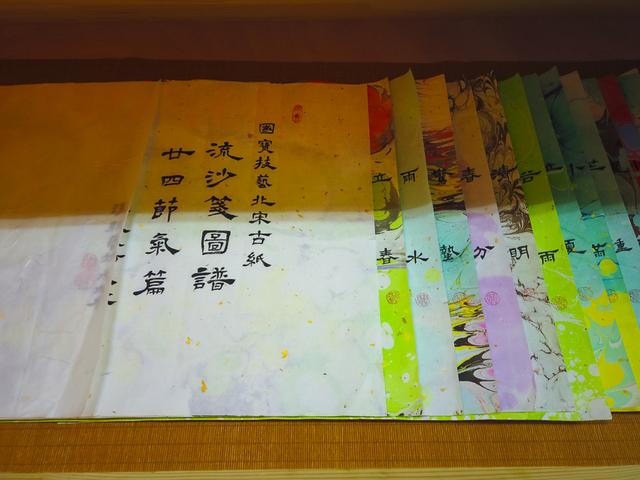 國寶技藝北宋古紙
流沙箋圖譜
廿四節氣篇
立春
雨水
驚蟄
春分
清明
谷雨
立夏